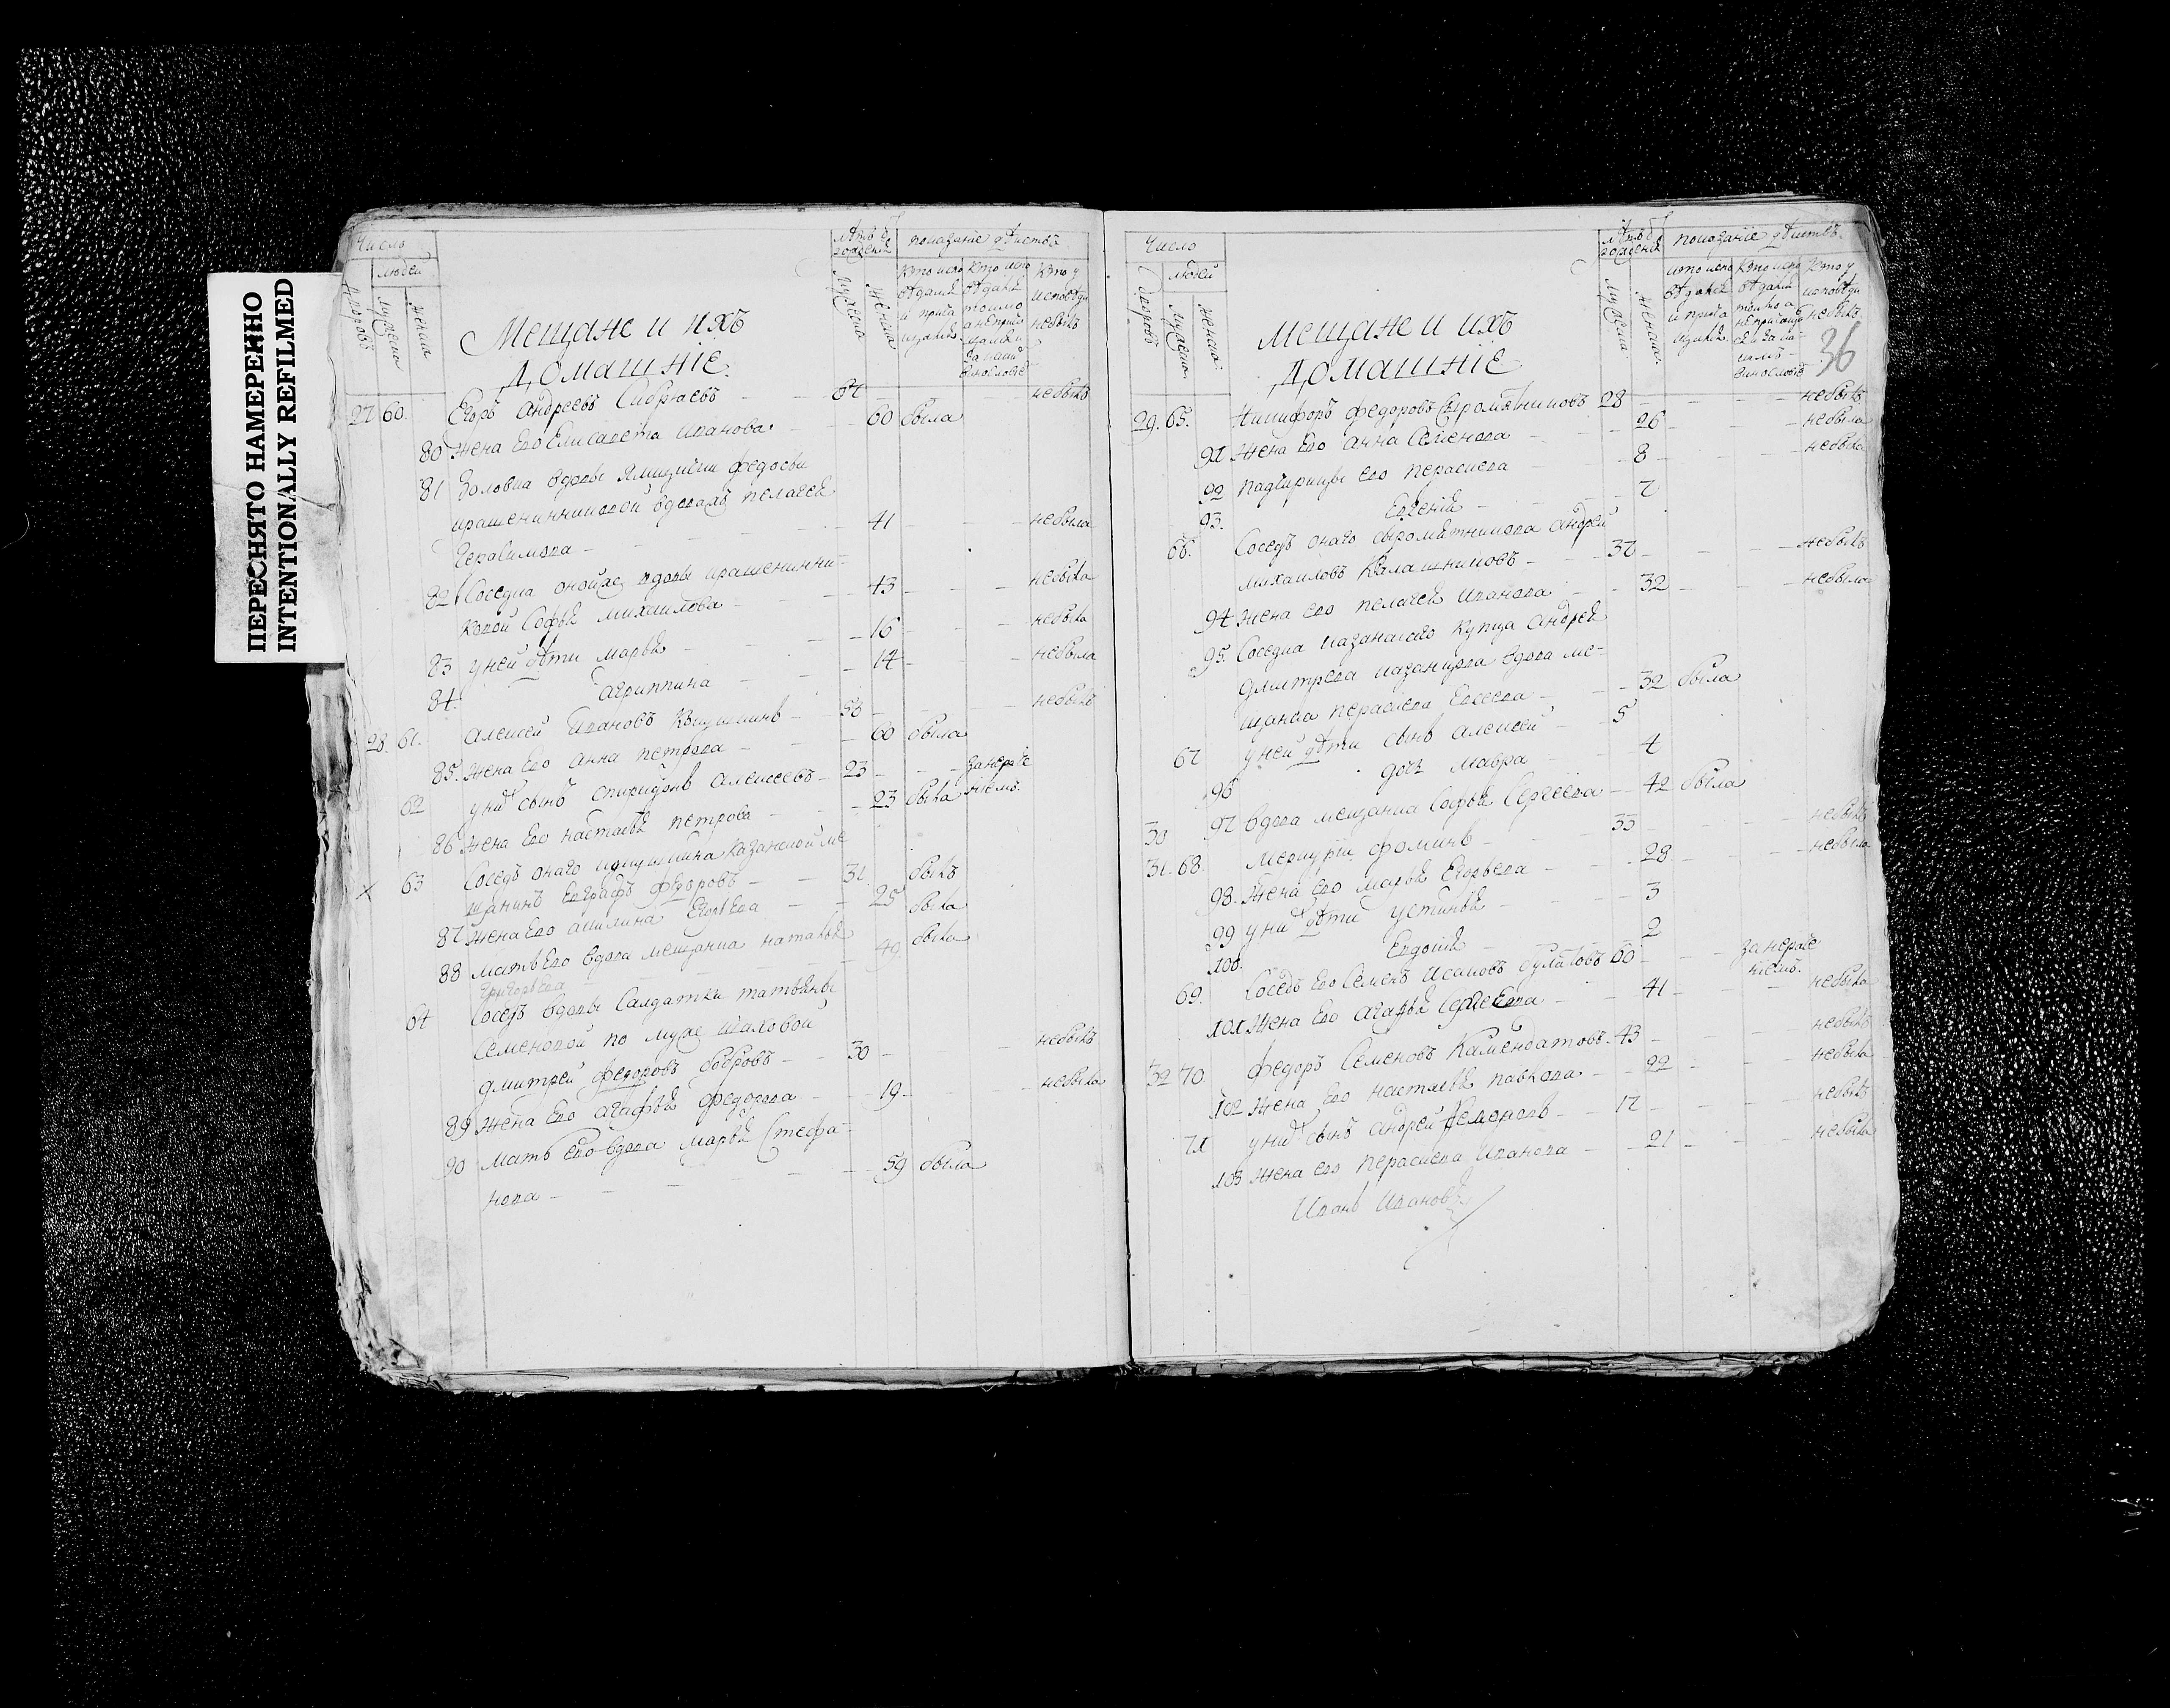 ПЕРЕСНЯТО НАМЕРЕННО
INTENTIONALLY REFILMED
Число
людей
дворовъ
мужеска
женска
Мещане и ихъ
домашніе.
мужеска
женска
показаніе дѣйствъ
27 60. Егоръ Андреевъ 64 небылъ
80 жена Его Елисавета Иванова 60 была
81 Золовка вдовы Федосьи
крашенинниковой вдова Пелагея
Герасимова 41 небыла
82 Соседка онойже вдовы крашенинни-
ковой Софья Михаилова 43 небыла
83 у ней дѣти Марья 16 небыла
84. Агриппина 14 небыла
28 61. Алексей Ивановъ 58 небылъ
85. жена Его Анна Петрова 60 была
62 у них сынъ Спиридонъ Алексеевъ 23 за нераче
ніемъ.
86 жена Его Настасья Петрова 23 была
63 Соседъ онаго Казанской ме
щанинъ Евграфъ Федоровъ 31. былъ
87 жена Его Акилина Егорьева 25 была
88 мать Его вдова мещанка Наталья 49 была
Григорьева
64 Соседъ вдовы Салдатки Татьяны
Семеновой по муже Шаховой
Дмитрей Федоровъ Бобровъ 30 небылъ
89 жена Его Агафья Федорова 19 небыла
90 мать Его вдова Марья Стефа-
нова 59 была
Число
людей
дворовъ
мужеска
женска
Мещане и ихъ
домашніе
мужеска
женска
показаніе дѣйствъ.
36
29. 65. Никифоръ Федоровъ Сыромятниковъ 28 небылъ
91 жена Его Анна Семенова 26 небыла
92 падчерицы его Параскева 8 небыла
93. Евгения 7
66. Соседъ онаго Сыромятникова Андрей
Михаиловъ Калашниковъ 37 небылъ
94 жена его Пелагея Иванова 32 небыла
95. Соседка казанскаго купца Андрея
Дмитрева вдова ме-
щанка Параскева Евсеева 32 была
67 у ней дѣти сынъ Алексей 5
96 дочь Мавра 4
30 97 вдова мещанка Софья Сергеева 42 была
31. 68. Меркурій Фоминъ 33 небылъ
98. жена его Марья Егорьева 28 небыла
99 у них дѣти Устинья 3
100. Евдокия 2
69. Соседъ его Семенъ Исаковъ Булатовъ 60 за нераче
ніемъ.
101 жена Его Агафья Сергеева 41 небыла
32 70. Федоръ Семеновъ Камендатовъ 43 небылъ
102 жена Его Настасья Павлова 22 небыла
71 у них сынъ Андрей Семеновъ 17 небылъ
103 жена его Параскева Иванова 21 небыла
Иванъ Ивановъ